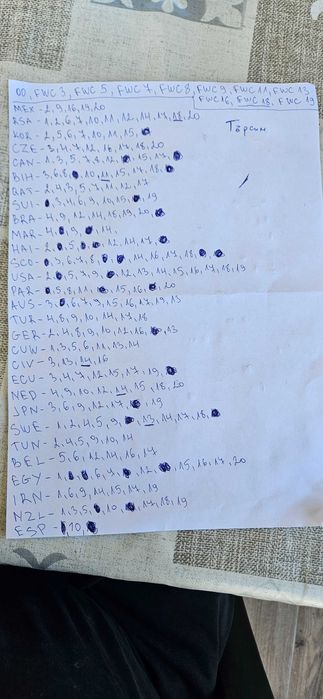 00, FWC 3, FWC 5, FWC 7, FWC 8, FWC 9, FWC 11, FWC 13
FWC 16, FWC 18, FWC 19
Търсим
MEX - 2, 9, 16, 19, 20
RSA - 1, 2, 6, 7, 10, 11, 12, 14, 17, 18, 20
KOR - 2, 5, 6, 7, 10, 11, 15,
CZE - 3, 4, 7, 12, 16, 17, 18, 20
CAN - 1, 3, 5, 7, 8, 12, 15, 17,
BIH - 3, 6, 8, 10, 11, 15, 17, 18,
QAT - 2, 4, 3, 5, 7, 11, 12, 17
SUI - 3, 4, 6, 9, 10, 15, 19
BRA - 4, 9, 12, 14, 18, 19, 20,
MAR - 4, 9, 14,
HAI - 2, 5, 12, 14, 17,
SCO - 3, 6, 7, 8, 14, 16, 17, 18,
USA - 2, 5, 7, 9, 12, 13, 14, 15, 16, 17, 18, 19
PAR - 5, 8, 11, 15, 16, 20
AUS - 3, 6, 7, 9, 15, 16, 17, 19, 13
TUR - 4, 8, 9, 10, 14, 17, 18
GER - 2, 4, 8, 9, 10, 12, 16, 13
CUW - 1, 3, 5, 6, 11, 13, 14
CIV - 3, 13, 14, 16
ECU - 3, 4, 7, 12, 15, 17, 19,
NED - 4, 9, 10, 12, 14, 15, 18, 20
JPN - 3, 6, 9, 12, 17, 19
SWE - 1, 2, 4, 5, 9, 10, 13, 14, 17, 18,
TUN - 2, 4, 5, 9, 10, 14
BEL - 5, 6, 12, 14, 16, 17
EGY - 1, 6, 4, 12, 15, 16, 17, 20
IRN - 1, 6, 9, 14, 15, 17, 19
NZL - 1, 3, 5, 10, 17, 18, 19
ESP - 10,